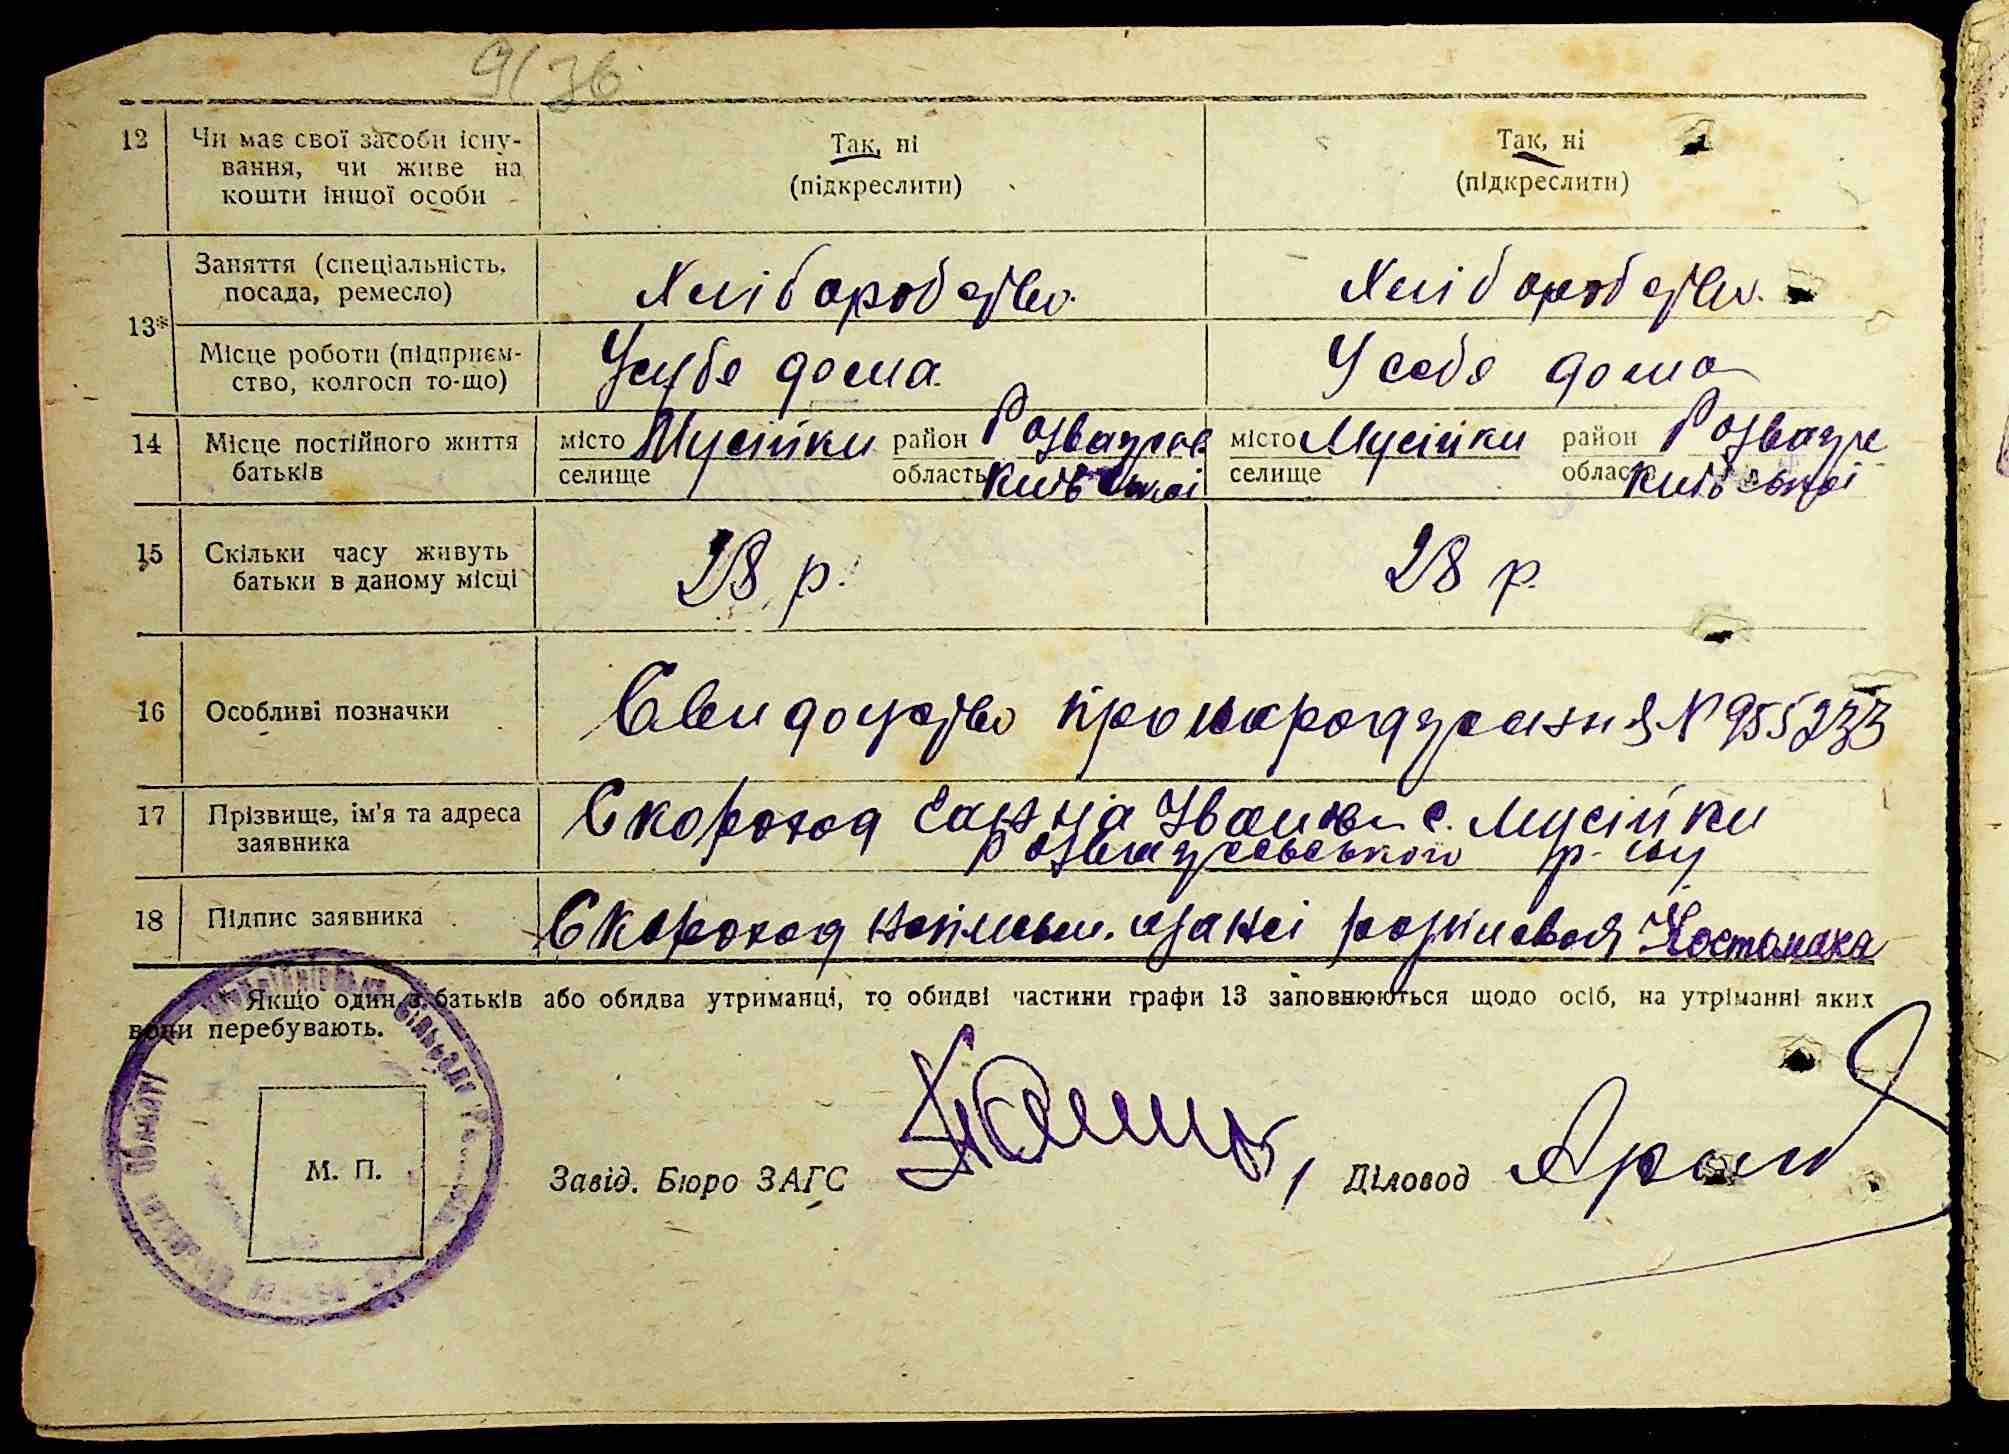 9/36
12 Чи має свої засоби існу-
вання, чи живе на
кошти іншої особи
Так, ні
(підкреслити)
Так, ні
(підкреслити)
13*
Заняття (спеціальність,
посада, ремесло)
Хліборобство.
Хліборобство.
Місце роботи (підприєм-
ство, колгосп то-що)
У себе дома
У себе дома
14 Місце постійного життя
батьків
місто Мусійки район Розважів
селище область Київської
місто Мусійки район Розваж
селище область Київської
15 Скільки часу живуть
батьки в даному місці
28 р.
28 р.
16 Особливі позначки
Свидоцтво про народження № 955233
17 Прізвище, ім'я та адреса
заявника
Скороход Іванов с. Мусійки
Розважевського р-ну
18 Підпис заявника
Скороход неписьм.
Якщо один з батьків або обидва утриманці, то обидві частини графи 13 заповнюються щодо осіб, на утріманні яких
вони перебувають.
М. П.
Завід. Бюро ЗАГС
Діловод